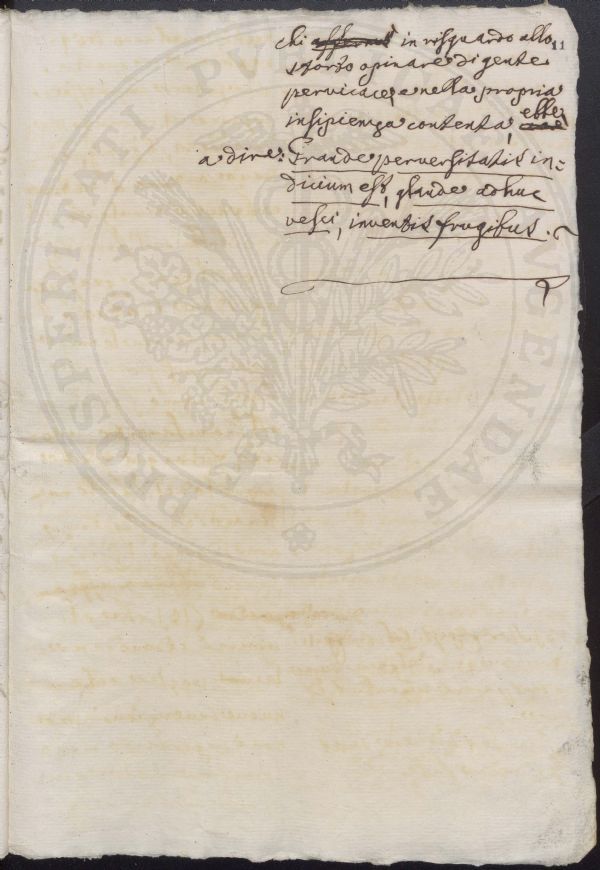 chi affermò in risguardo allo 11
storto opinare di gente
pervicace, e nella propria
insipienza contenta, ebbe
a dire: Grande perversitatis in=
dicium est, glande adhuc
vesci, inventis frugibus.
PROSPERITATI PUBLICAE AUGENDAE